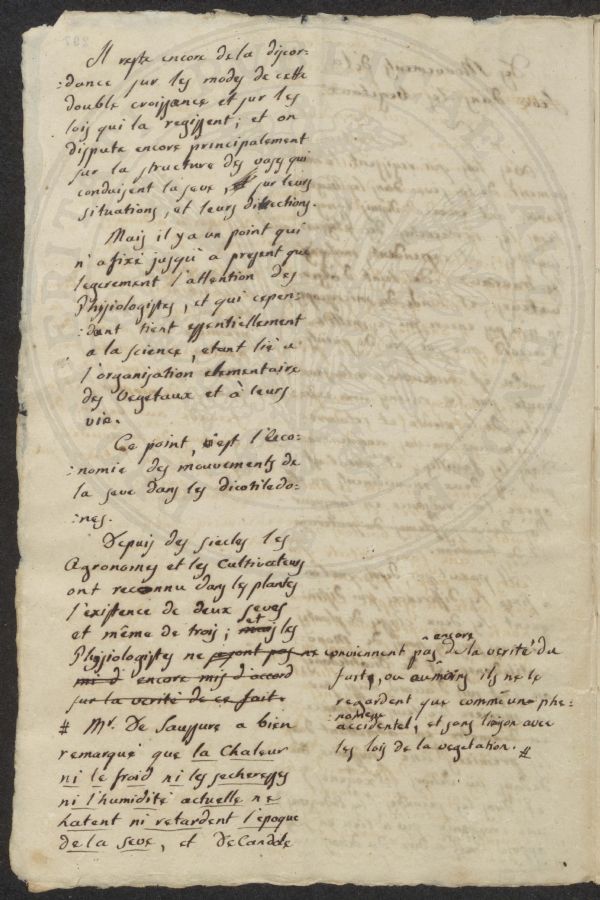 Il reste encore de la discor:
:dance sur les modes de cette
double croissance et sur les
lois qui la regissent; et on
dispute encore principalement
sur la structure des vases qui
conduisent la seve, sur leurs
situations, et leurs directions.
Mais il y a un point qui
n'a fixé jusqu'a present que
legerement l'attention des
Physiologistes, et qui cepen:
:dant tient essentiellement
a la science, etant lié a
l'organisation elementaire
des Vegetaux et à leurs
vie.
Ce point, c'est l'Eco:
:nomie des mouvements de
la seve dans les dicotiledo:
:nes.
Depuis des siecles les
Agronomes et les Cultivateurs
ont reconnu dans les plantes
l'existence de deux seves
et même de trois; mais et les
Physiologistes ne se sont pas
encore mis d'accord
sur la verité de ce fait.
ne conviennent pas encore de la verité du
fait, ou au moins ils ne le
regardent que comme un phe:
nomene
accidentel, et sans liaison avec
les lois de la vegetation. #
# Mr. De Saussure a bien
remarqué que la Chaleur
ni le froid ni les secheresses
ni l'humidité actuelle ne
hatent ni retardent l'époque
de la seve, et DeCandole